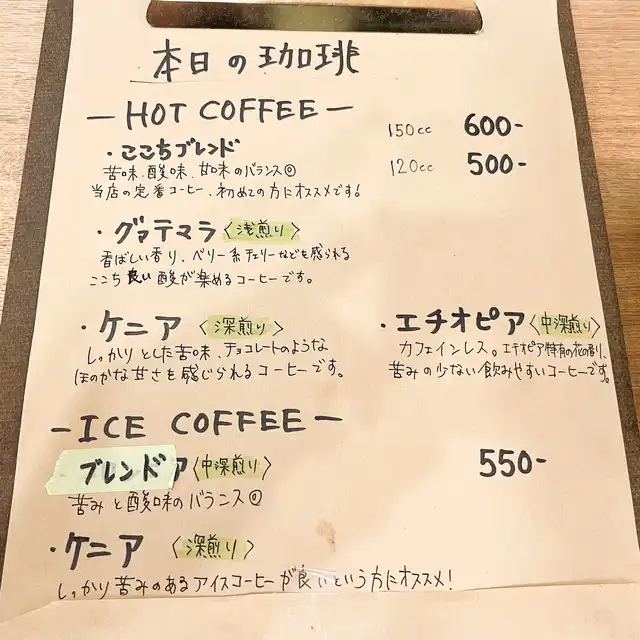 本日の珈琲
— HOT COFFEE —
150cc 600-
・ここちブレンド
120cc 500-
苦味、酸味、甘味のバランス◎
当店の定番コーヒー、初めての方にオススメです!
・グァテマラ〈浅煎り〉
香ばしい香り、ベリー系チェリーなどを感られる
ここち良い酸が楽めるコーヒーです。
・ケニア〈深煎り〉
しっかりとした苦味、チョコレートのような
ほのかな甘さを感じられるコーヒーです。
・エチオピア〈中深煎り〉
カフェインレス。エチオピア特有の花の香り、
苦みの少ない飲みやすいコーヒーです。
— ICE COFFEE —
ブレンドア〈中深煎り〉
550-
苦みと酸味のバランス◎
・ケニア〈深煎り〉
しっかり苦みのあるアイスコーヒーが良いという方にオススメ!